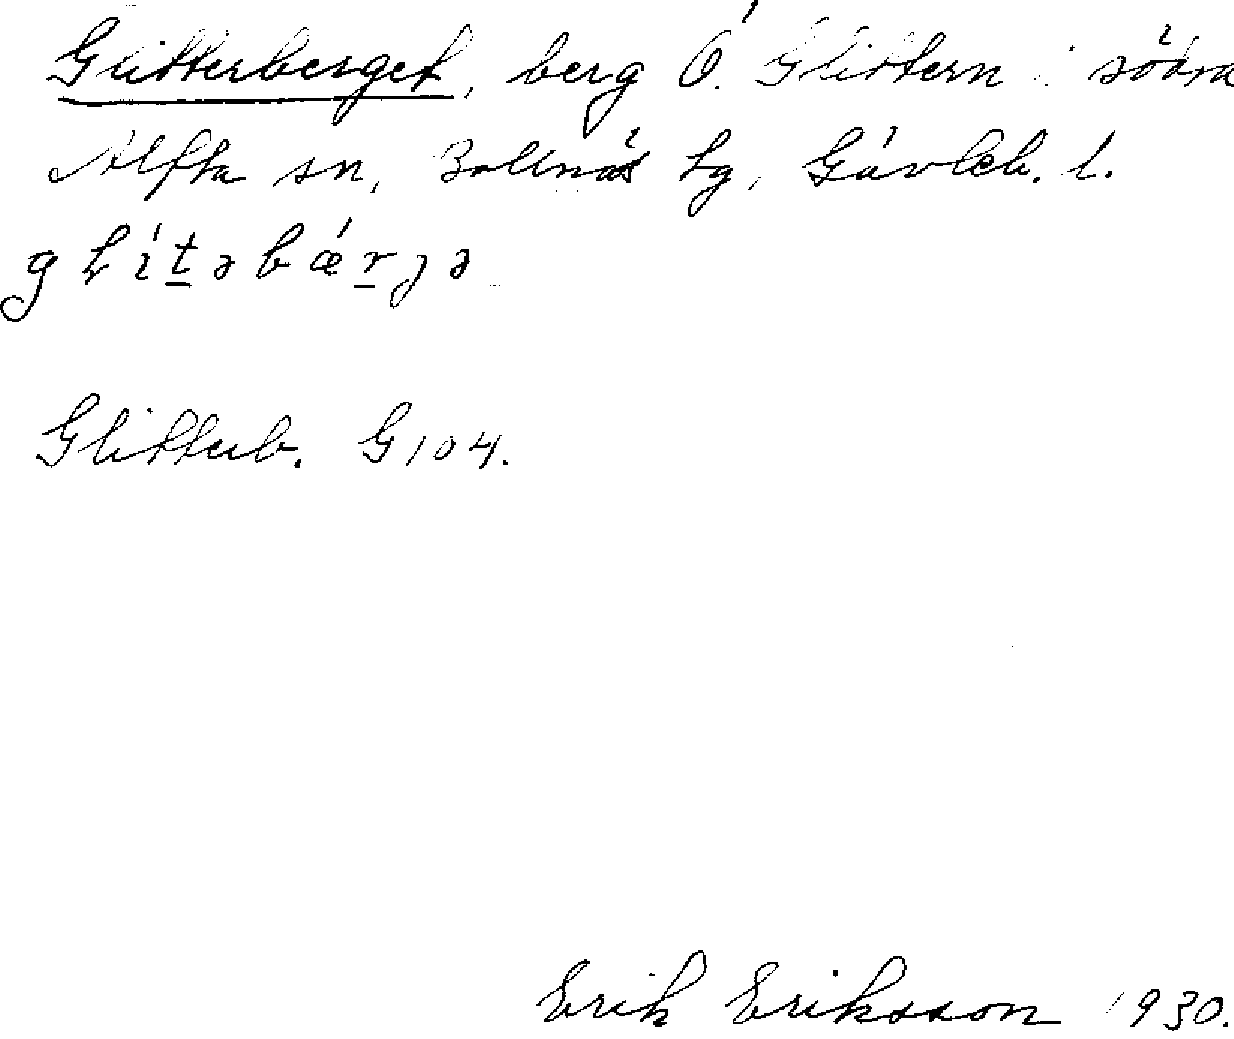 Glitterberget, berg Ö. Glittern i södra
Alfta sn, Bollnäs tg, Gävleb. l.
głít̲əbǽr̲ȷə
Glitterb. G104.
Erik Eriksson 1930.